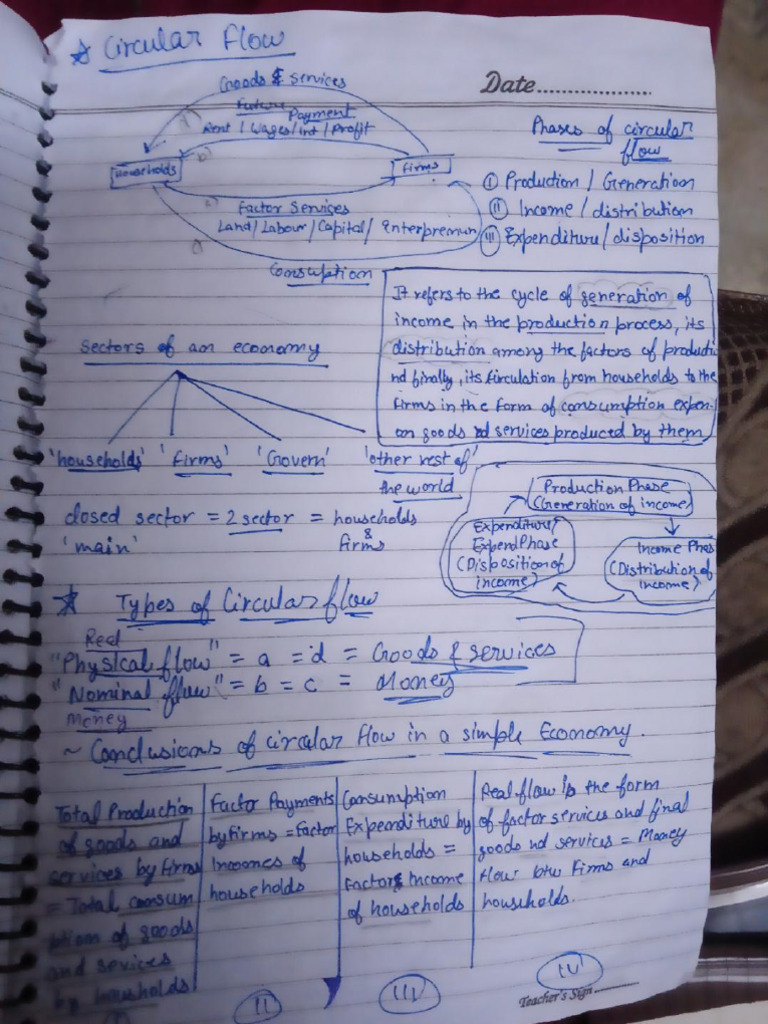 ☆ Circular Flow
Date
Goods & services
Payment
Rent / Wages/int / Profit
Households
Firms
Factor Services
Land/Labour/Capital/Enterpremun
Consuption
Phases of circular
flow
I Production / Generation
II Income / distribution
III Expenditure/disposition
It refers to the cycle of generation of
income in the production process, its
distribution among the factors of producti
nd finally, its firculation from households to the
firms in the form of consumption expen.
on goods nd services produced by them
Sectors of an economy
'households' 'firms' 'Govern' 'other rest of'
the world
closed sector = 2 sector = households
&
'main' firms
Production Phase
(Generation of income)
Income Phas
(Distribution of
income)
Expenditure/
Expend Phase
(Disposition of
income)
☆ Types of Circular flow
Real
"Physical flow" = a = d = Goods & services
"Nominal flow" = b = c = Money
Money
~ Conclusions of circular flow in a simple Economy.
Total Production
of goods and
services by firms
= Total consum
ption of goods
and sevices
by households
Factor Payments
by firms = Factor
Incomes of
households
II
Consumption
Expenditure by
households =
Factors Income
of households
III
Real flow in the form
of factor services and final
goods nd services = Money
flow btw Firms and
households.
IV
Teacher's Sign